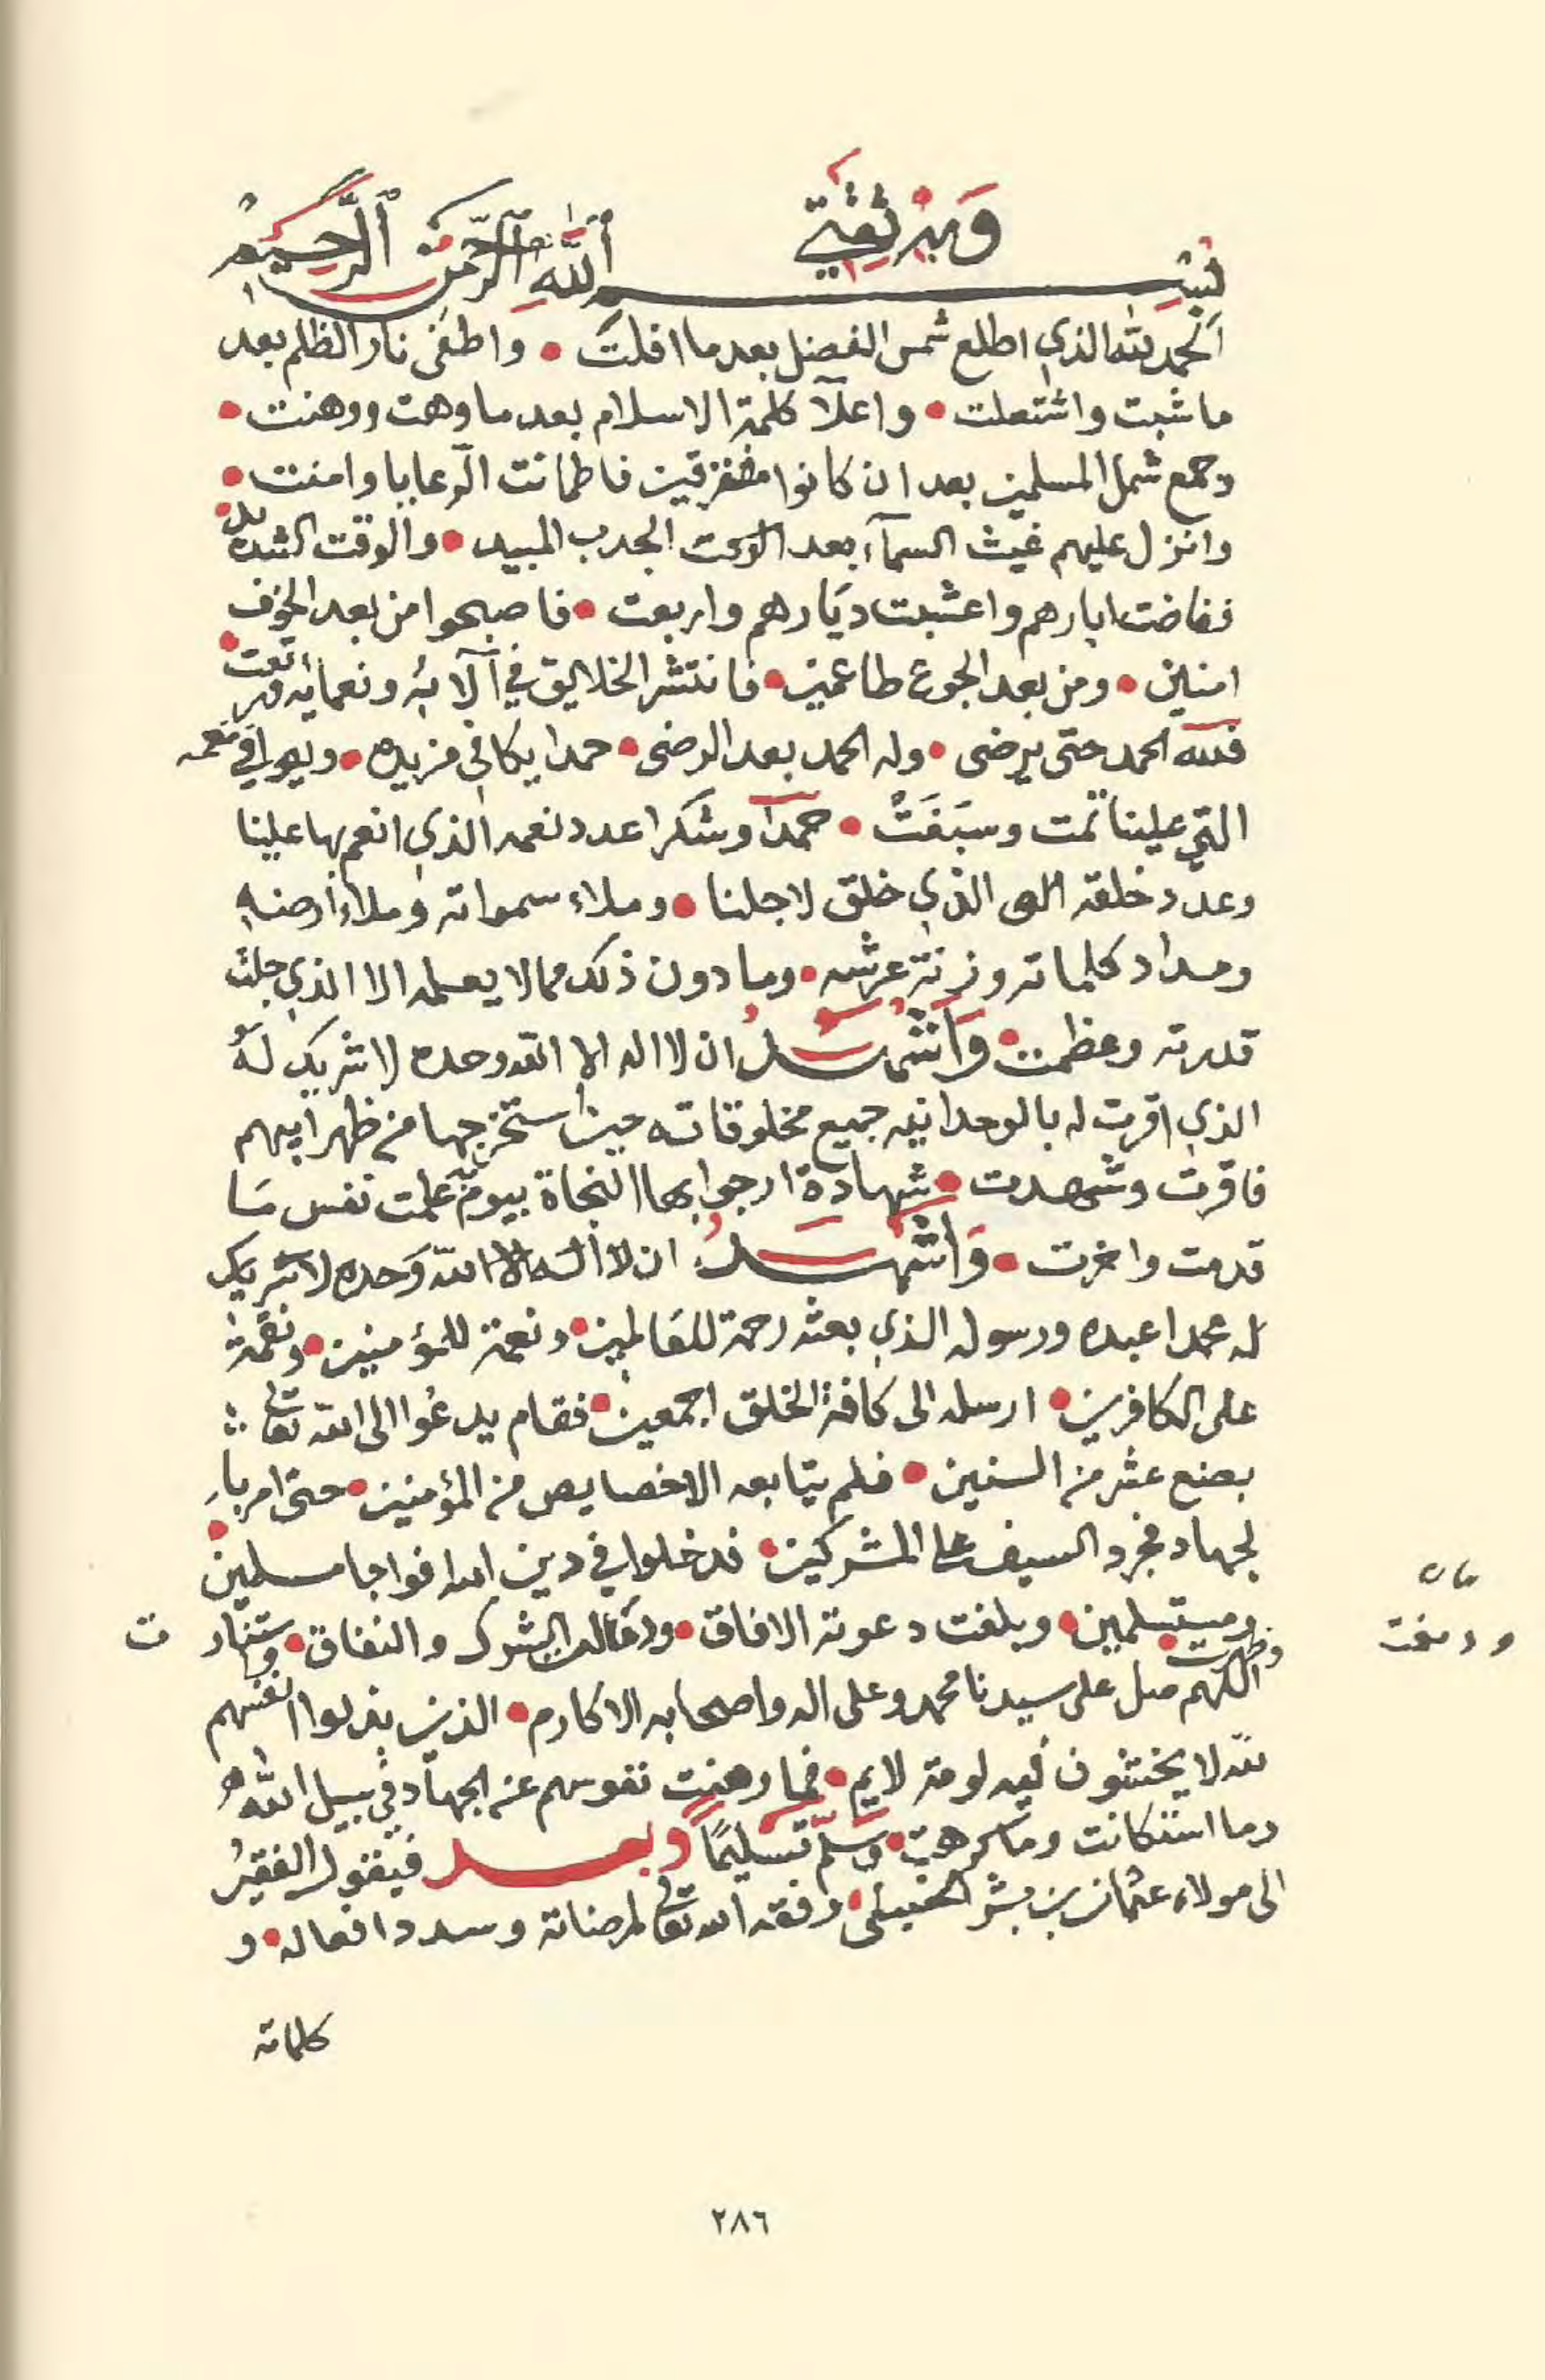 وبه ثقتي
بسم الله الرحمن الرحيم
الحمد لله الذي اطلع شمس الفضل بعد ما افلت • واطفى نار الظلم بعد
ما شبت واشتعلت • واعلآ كلمة الاسلام بعد ما وهت ووهنت •
وجمع شمل المسلمين بعد ان كانوا متفرقين فاطمانت الرعايا وامنت •
وانزل عليهم غيث السمآء بعد الجدب المبيد • والوقت الشديد •
ففاضت ابارهم واعشبت ديارهم واربعت • فاصبحوا من بعد الخوف
امنين • ومن بعد الجوع طاعمين • فانتشر الخلايق في آلآئه ونعمايه ورتعت •
فلله الحمد حتى يرضى • وله الحمد بعد الرضى • حمدا يكافي مزيده • ويوافي نعمه
التي علينا تمت وسبغت • حمدا وشكرا عدد نعمه الذي انعم بها علينا
وعدد خلقه الذي خلق لاجلنا • وملاء سمواته وملاء ارضه
ومداد كلماته وزنة عرشه • وما دون ذلك مما لا يعلمه الا الذي جلت
قدرته وعظمت • واشهد ان لا اله الا الله وحده لا شريك له
الذي اقرت له بالوحدانيه جميع مخلوقاته حين استخرجها من ظهر ابيهم
فاقرت وشهدت • شهادة ارجوا بها النجاة بيوم علمت نفس ما
قدمت واخرت • واشهد ان لا اله الا الله وحده لا شريك
له محمدا عبده ورسوله الذي بعثه رحمة للعالمين • ونعمة للمؤمنين • ونقمة
على الكافرين • ارسله الى كافة الخلق اجمعين • فقام يدعوا الى الله تعالى
بضع عشر من السنين • فلم يتابعه الا خصايص من المؤمنين • حتى امر با
لجهاد فجرد السيف على المشركين • فدخلوا في دين الله افواجا مسلمين •
ومستسلمين • وبلغت دعوته الافاق • الشرك والنفاق •
وظهرت
ودمغت
ت
اللهم صل على سيدنا محمد وعلى اله واصحابه الاكارم • الذين بذلوا انفسهم
لله لا يخشون فيه لومة لايم • فما وهنت نفوسهم عن الجهاد في سبيل الله
وما استكانت وما كرهت • وسلم تسليمًا وبعد فيقول الفقير
الى مولاه عثمان بن بشر الحنبلي • وفقه الله تعالى لمرضاته وسدد افعاله • و
كلماته
٢٨٦